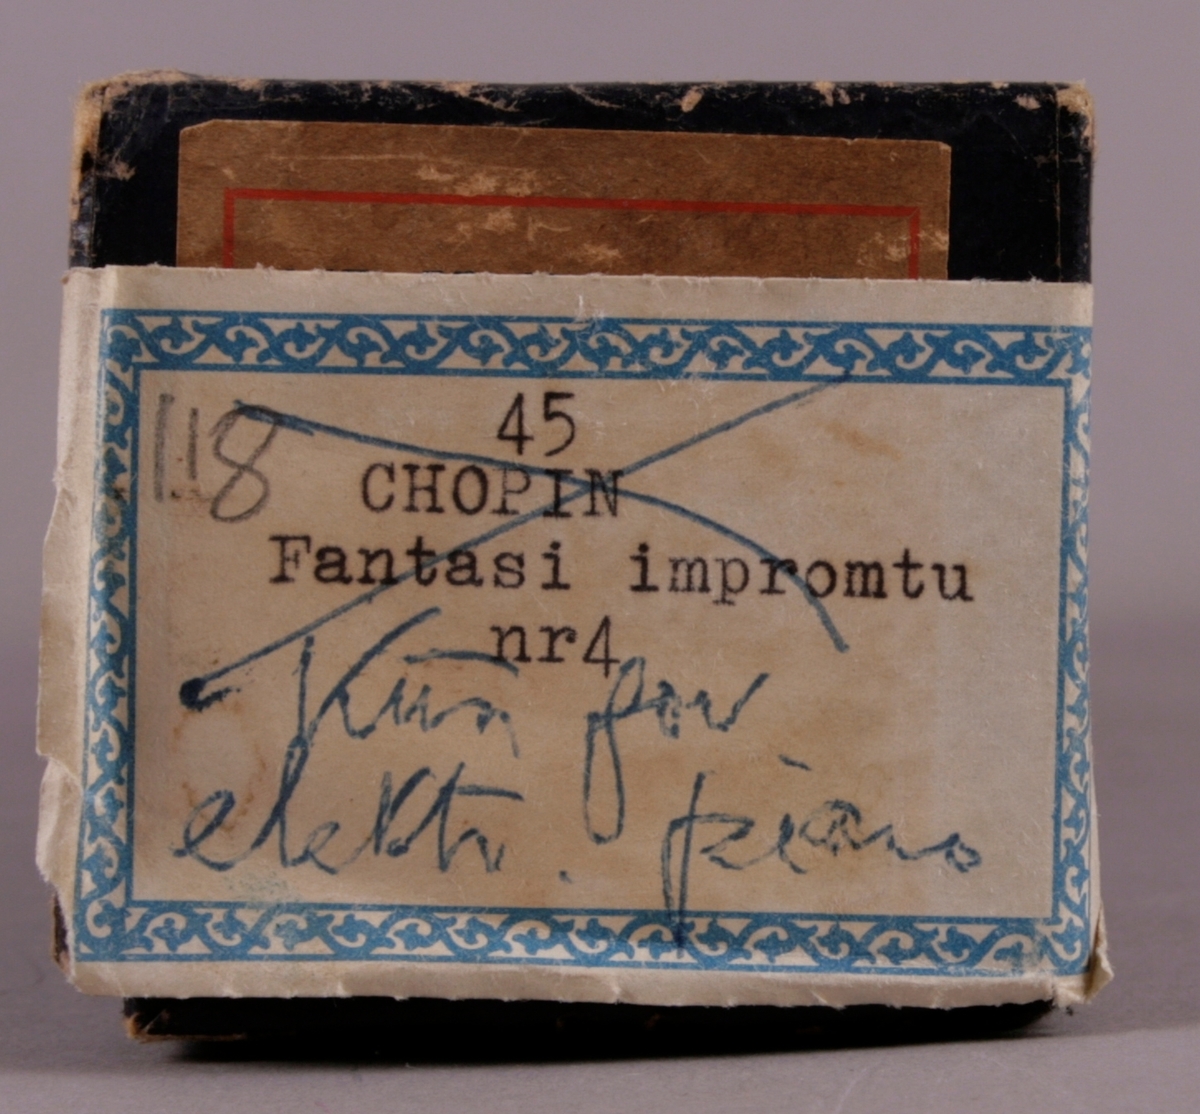 118
45
CHOPIN
Fantasi impromtu
nr4
Kun for
elektr. piano